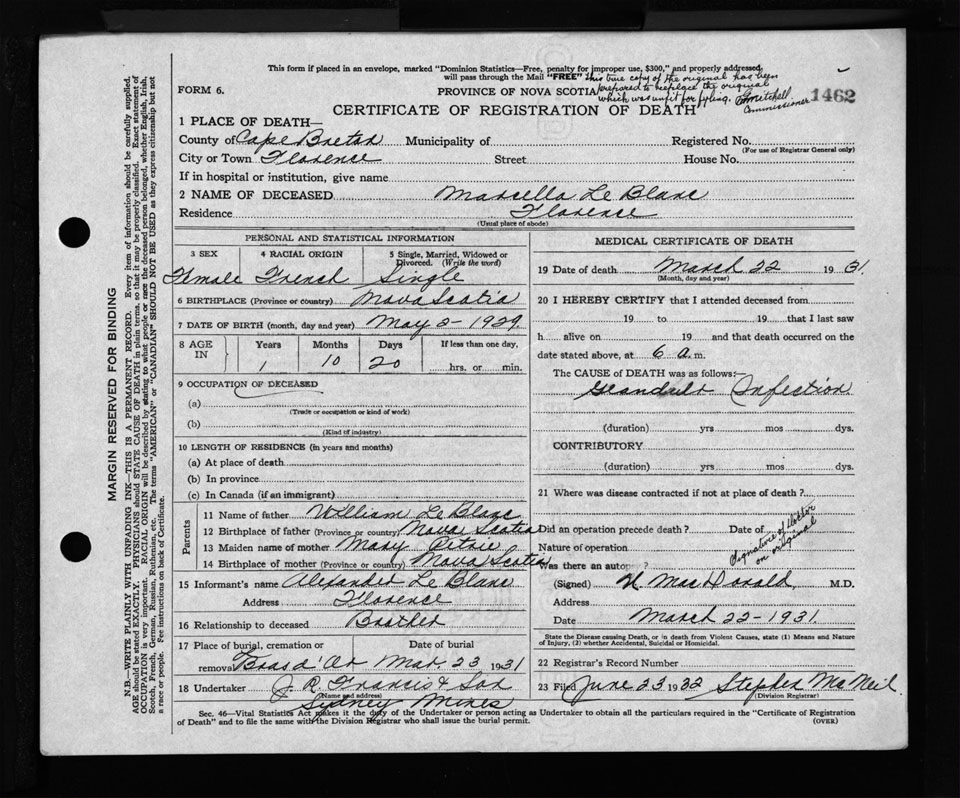 This form if placed in an envelope, marked "Dominion Statistics—Free, penalty for improper use, $300," and properly addressed,
will pass through the Mail "FREE" This true copy of the original has been
FORM 6. PROVINCE OF NOVA SCOTIA prepared to replace the original
which was unfit for filing. Mitchell
Commissioner
1462
CERTIFICATE OF REGISTRATION OF DEATH
1 PLACE OF DEATH—
County of Cape Breton Municipality of Registered No.
(For use of Registrar General only)
City or Town Florence Street House No.
If in hospital or institution, give name
2 NAME OF DECEASED Marcella Le Blanc
Residence Florence
(Usual place of abode)
PERSONAL AND STATISTICAL INFORMATION
3 SEX 4 RACIAL ORIGIN 5 Single, Married, Widowed or
Divorced. (Write the word)
Female French Single
6 BIRTHPLACE (Province or country) Nova Scotia
7 DATE OF BIRTH (month, day and year) May 2-1929
8 AGE IN Years Months Days If less than one day,
1 10 20 hrs. or min.
9 OCCUPATION OF DECEASED
(a)
(Trade or occupation or kind of work)
(b)
(Kind of industry)
10 LENGTH OF RESIDENCE (in years and months)
(a) At place of death
(b) In province
(c) In Canada (if an immigrant)
Parents
11 Name of father William Le Blanc
12 Birthplace of father (Province or country) Nova Scotia
13 Maiden name of mother Mary Petrie
14 Birthplace of mother (Province or country) Nova Scotia
15 Informant's name Alexander Le Blanc
Address Florence
16 Relationship to deceased Brother
17 Place of burial, cremation or Date of burial
removal Bras d'Or Mar. 23 1931
18 Undertaker J. R. Francis & Son
(Name and address)
Sydney Mines
MEDICAL CERTIFICATE OF DEATH
19 Date of death March 22 1931.
(Month, day and year)
20 I HEREBY CERTIFY that I attended deceased from
19 to 19 that I last saw
h alive on 19 and that death occurred on the
date stated above, at 6 a.m.
The CAUSE of DEATH was as follows:—
Glandular Infection
(duration) yrs mos dys.
CONTRIBUTORY
(duration) yrs mos dys.
21 Where was disease contracted if not at place of death?
Did an operation precede death? Date of
Nature of operation
Signature of Doctor
on original
Was there an autop ?
(Signed) N. MacDonald, M.D.
Address
Date March 22-1931.
State the Disease causing Death, or in death from Violent Causes, state (1) Means and Nature
of Injury, (2) whether Accidental, Suicidal or Homicidal.
22 Registrar's Record Number
23 Filed June 23 1932 Stephen McNeil.
(Division Registrar)
Sec. 46—Vital Statistics Act makes it the duty of the Undertaker or person acting as Undertaker to obtain all the particulars required in the "Certificate of Registration
of Death" and to file the same with the Division Registrar who shall issue the burial permit. (OVER)
MARGIN RESERVED FOR BINDING
N.B.—WRITE PLAINLY WITH UNFADING INK—THIS IS A PERMANENT RECORD. Every item of information should be carefully supplied.
AGE should be stated EXACTLY. PHYSICIANS should STATE CAUSE OF DEATH in plain terms, so that it may be properly classified. Exact statement of
OCCUPATION is very important. RACIAL ORIGIN will be described by stating to what people or race the deceased person belonged, whether English, Irish,
Scotch, French, German, Russian, Ruthenian, etc. The terms "AMERICAN" or "CANADIAN" SHOULD NOT BE USED as they express citizenship but not
a race or people. Fee instructions on back of Certificate.